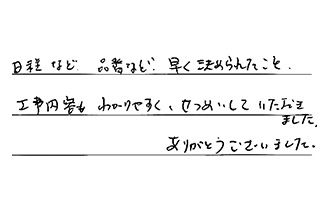 日程など 品番など 早く決められたこと.
工事内容も わかりやすく、せつめいして いただき
ました。
ありがとうございました。